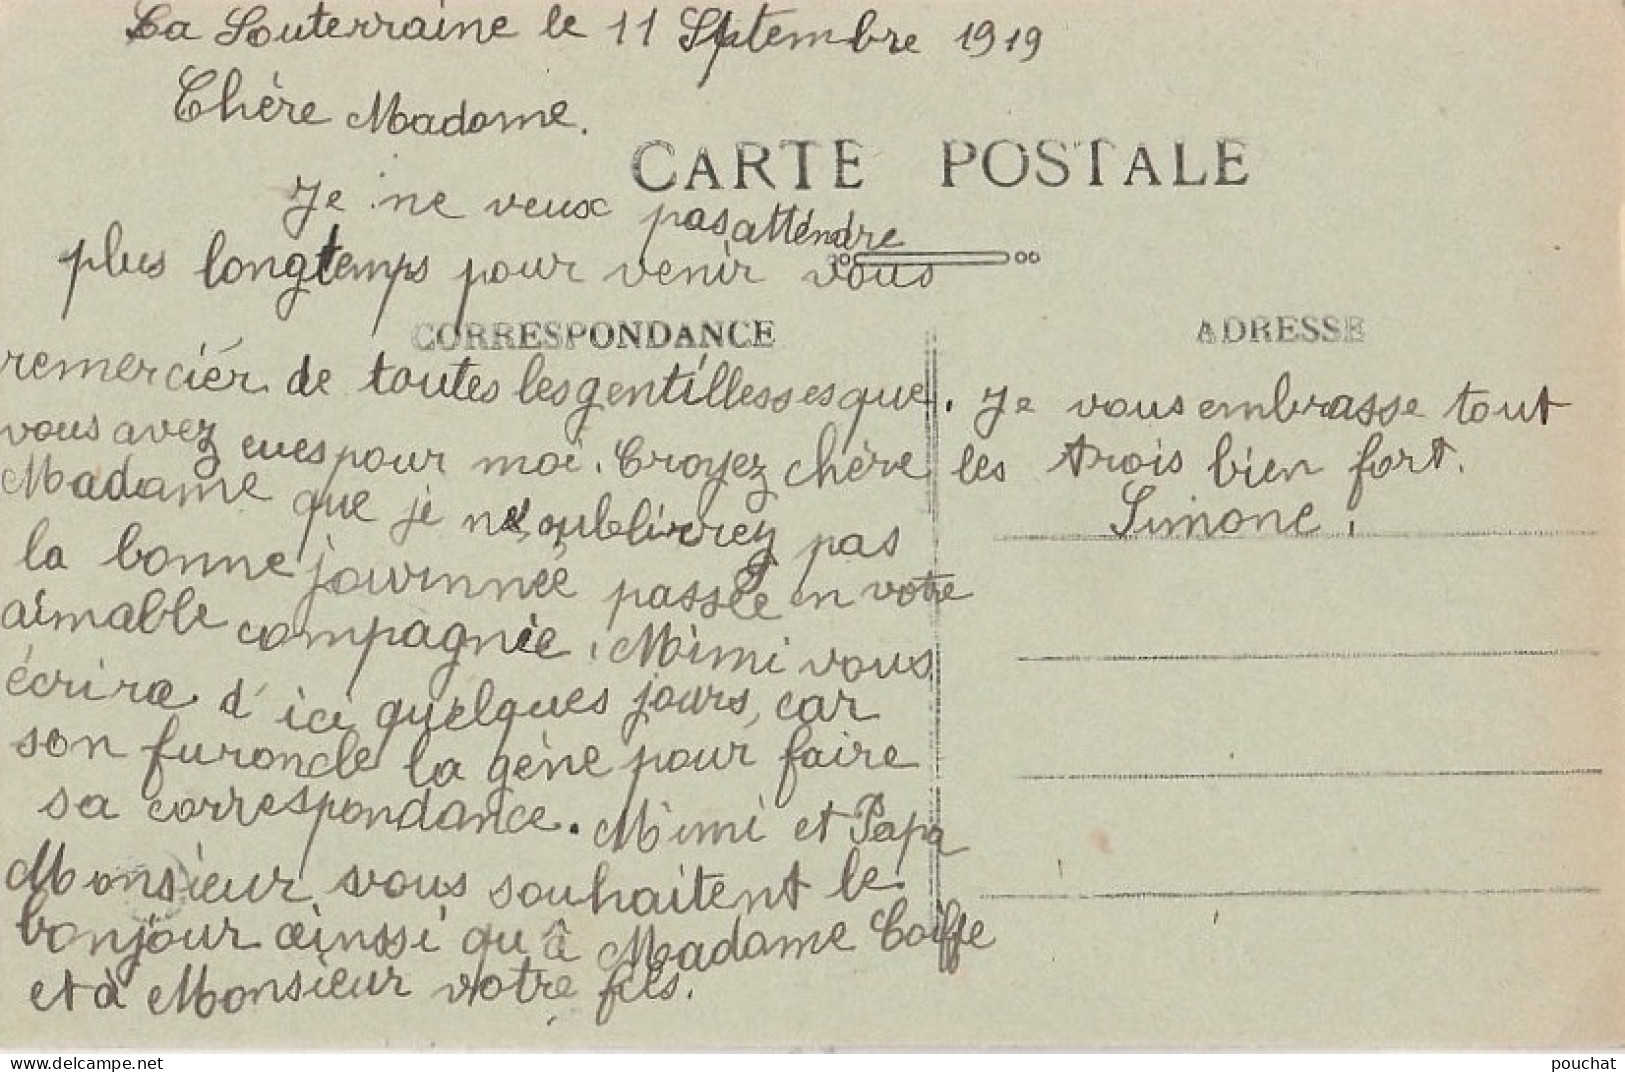 La Souterraine le 11 Septembre 1919
Chère Madame.
CARTE POSTALE
Je ne veux pas attendre
plus longtemps pour venir vous
CORRESPONDANCE
ADRESSE
remerciér de toutes les gentillesses que
vous avez eues pour moi. Croyez chère
Madame que je n'oublirrez pas
la bonne journnée passée en votre
aimable compagnie. Mimi vous
écrira d'ici quelques jours, car
son furoncle la gène pour faire
sa correspondance. Mimi et Papa
Monsieur vous souhaitent le
bonjour ainssi qu'à Madame Coiffe
et à Monsieur votre fils.
Je vous embrasse tout
les trois bien fort.
Simone.
www.delcampe.net
pouchat